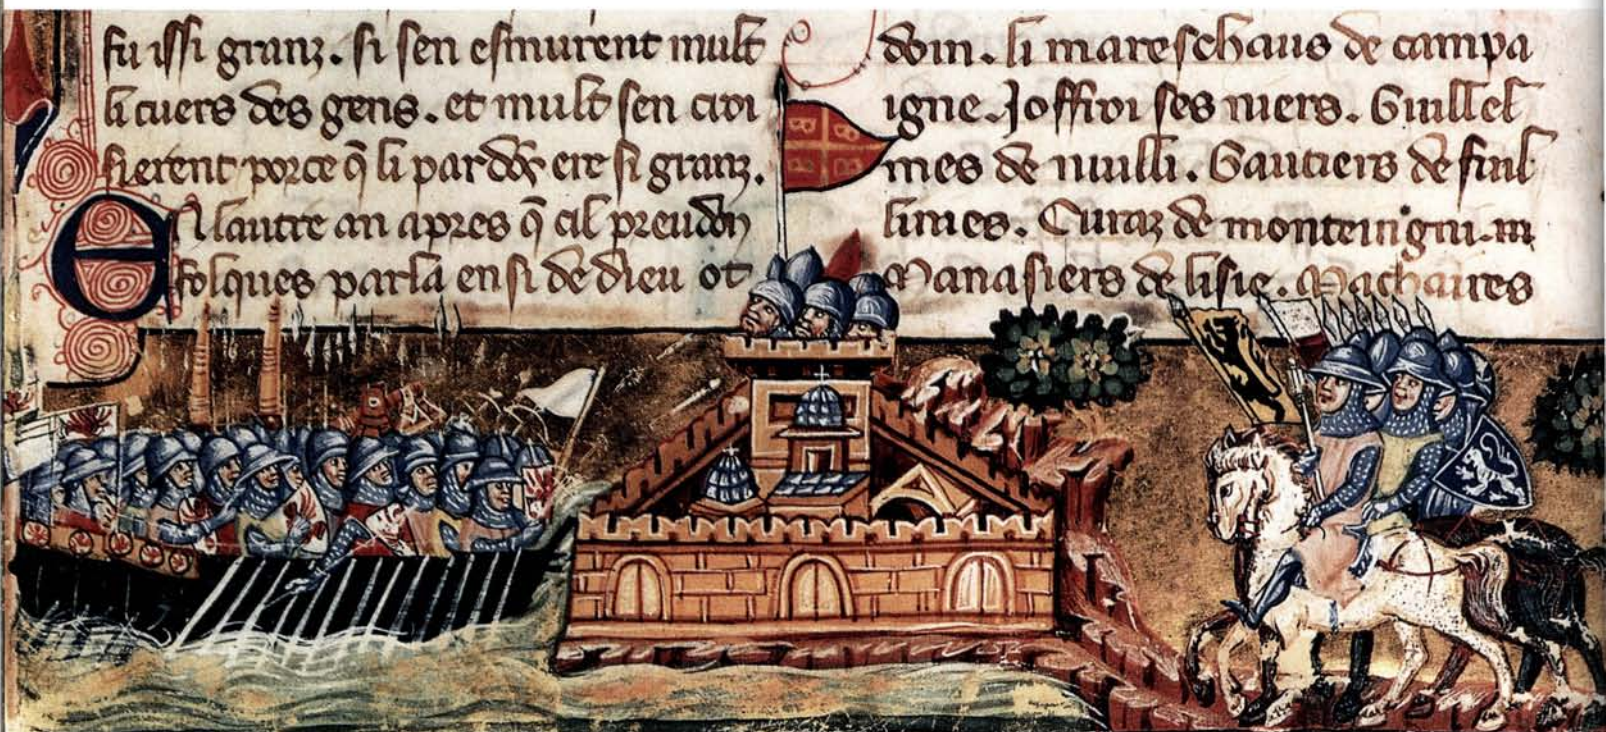 fu issi granz. si sen esmurent mult
li cuers des gens. et mult sen croi
sierent porce q̃ li pardõs ere si granz.
EN lautre an apres q̃ cil preudõ
folques parla ensi de dieu ot
doin. li mareschaus de campa
igne. Joffroi ses niers. Guillel
mes de nuilli. Gautiers de fuil
lines. Euraz de monteingni.
Manasiers de lisle. Machaires